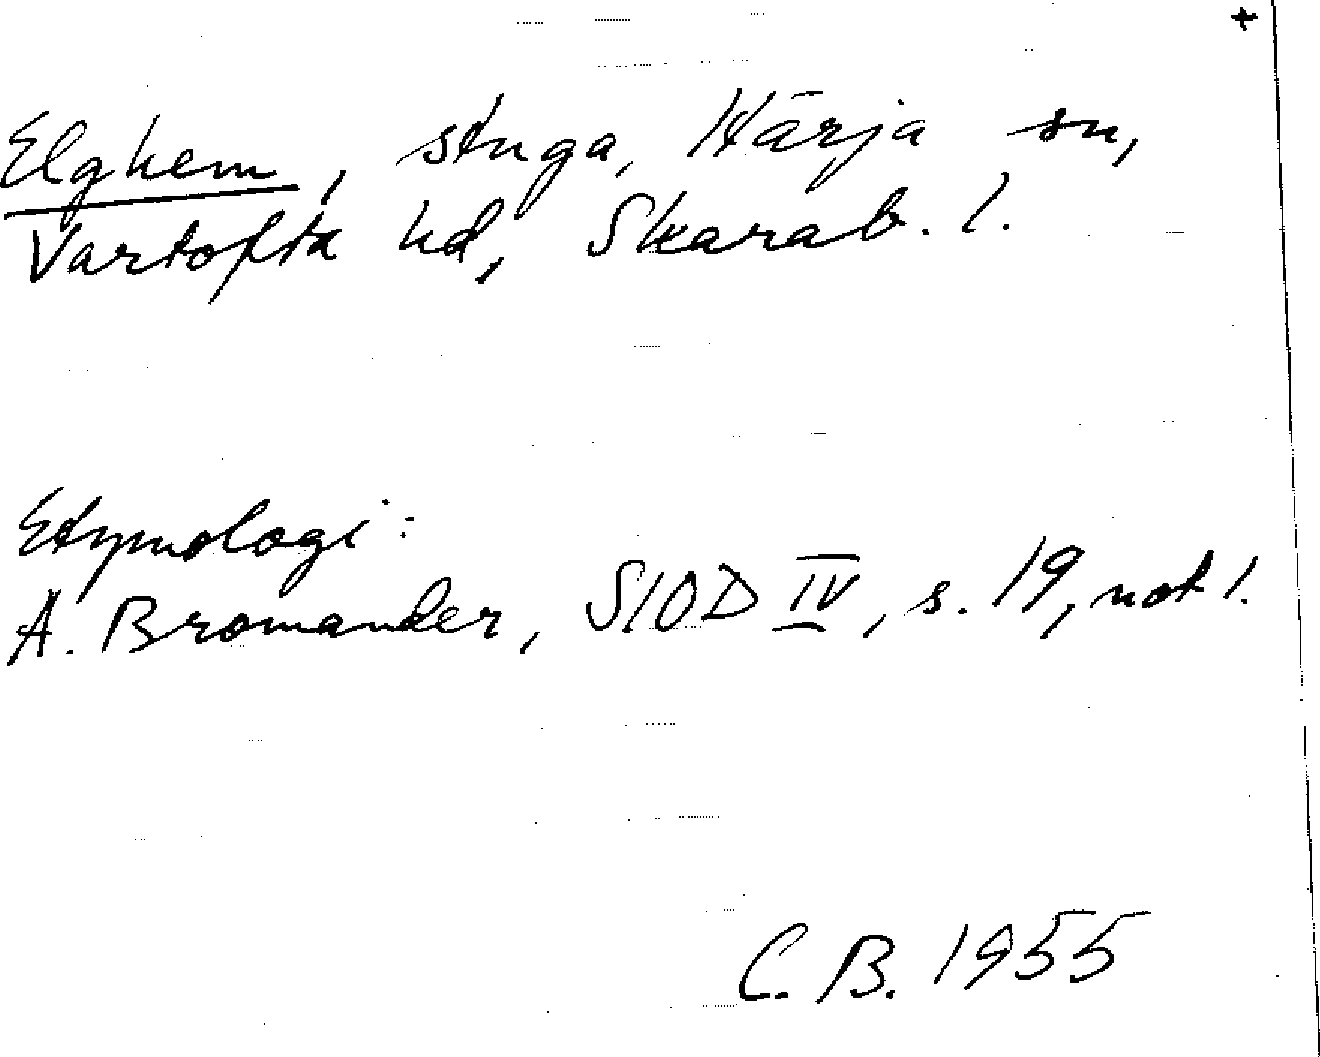 +
Elghem, stuga, Härja sn,
Vartofta hd, Skarab. l.
Etymologi:
A. Bromander, SIOD IV, s. 19, not 1.
C. B. 1955